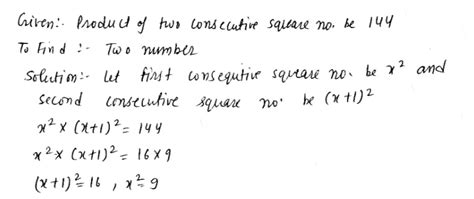 Given:- Product of two consecutive square no. be 144
To Find :- Two number
Solution:- let first consequtive square no. be x² and
second consecutive square no. be (x+1)²
x² × (x+1)² = 144
x² × (x+1)² = 16×9
(x+1)² = 16 , x² = 9